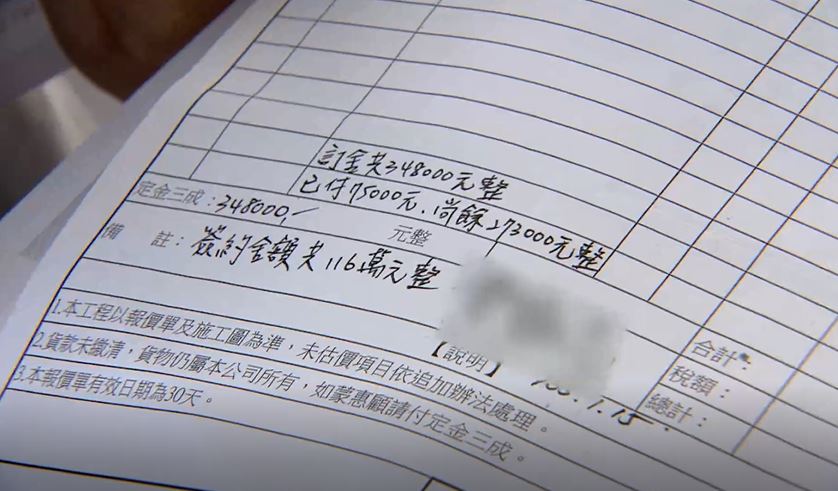 訂金共348000元整
已付75000元、尚餘273000元整
定金三成：348000,- 元整
備 註：簽約金額共116萬元整
【說明】
1.本工程以報價單及施工圖為準，未估價項目依追加辦法處理。
2.貨款未繳清，貨物仍屬本公司所有，如蒙惠顧請付定金三成。
3.本報價單有效日期為30天。
合計：
稅額：
總計：